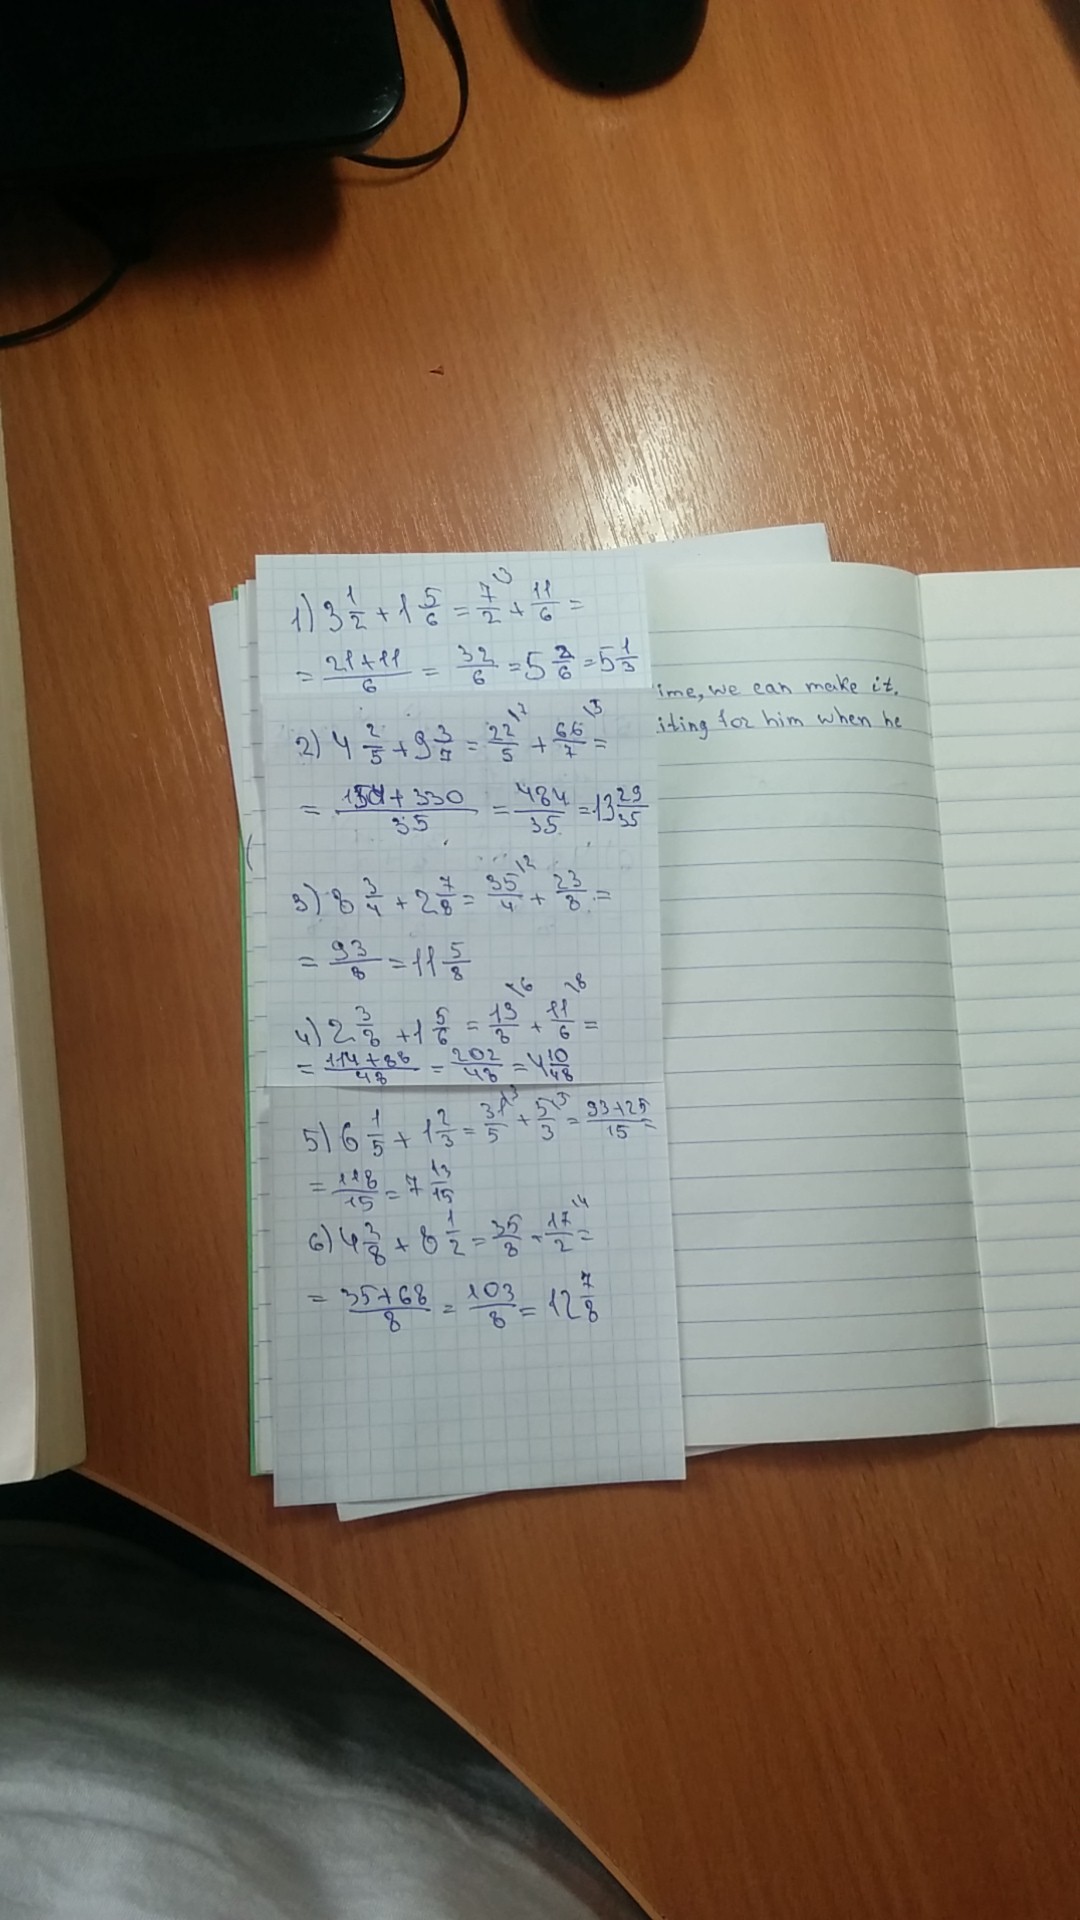 1) 3 1/2 + 1 5/6 = 7/2 ³ + 11/6 =
= 21+11/6 = 32/6 = 5 2/6 = 5 1/3
2) 4 2/5 + 9 3/7 = 22/5 \7 + 66/7 \5 =
= 154+330/35 = 484/35 = 13 29/35
3) 8 3/4 + 2 7/8 = 35/4 \2 + 23/8 =
= 93/8 = 11 5/8
4) 2 3/8 + 1 5/6 = 19/8 \6 + 11/6 \8 =
= 114+88/48 = 202/48 = 4 10/48
5) 6 1/5 + 1 2/3 = 31/5 \3 + 5/3 \5 = 93+25/15 =
= 118/15 = 7 13/15
6) 4 3/8 + 8 1/2 = 35/8 + 17/2 \4 =
= 35+68/8 = 103/8 = 12 7/8
ime, we can make it.
iting for him when he